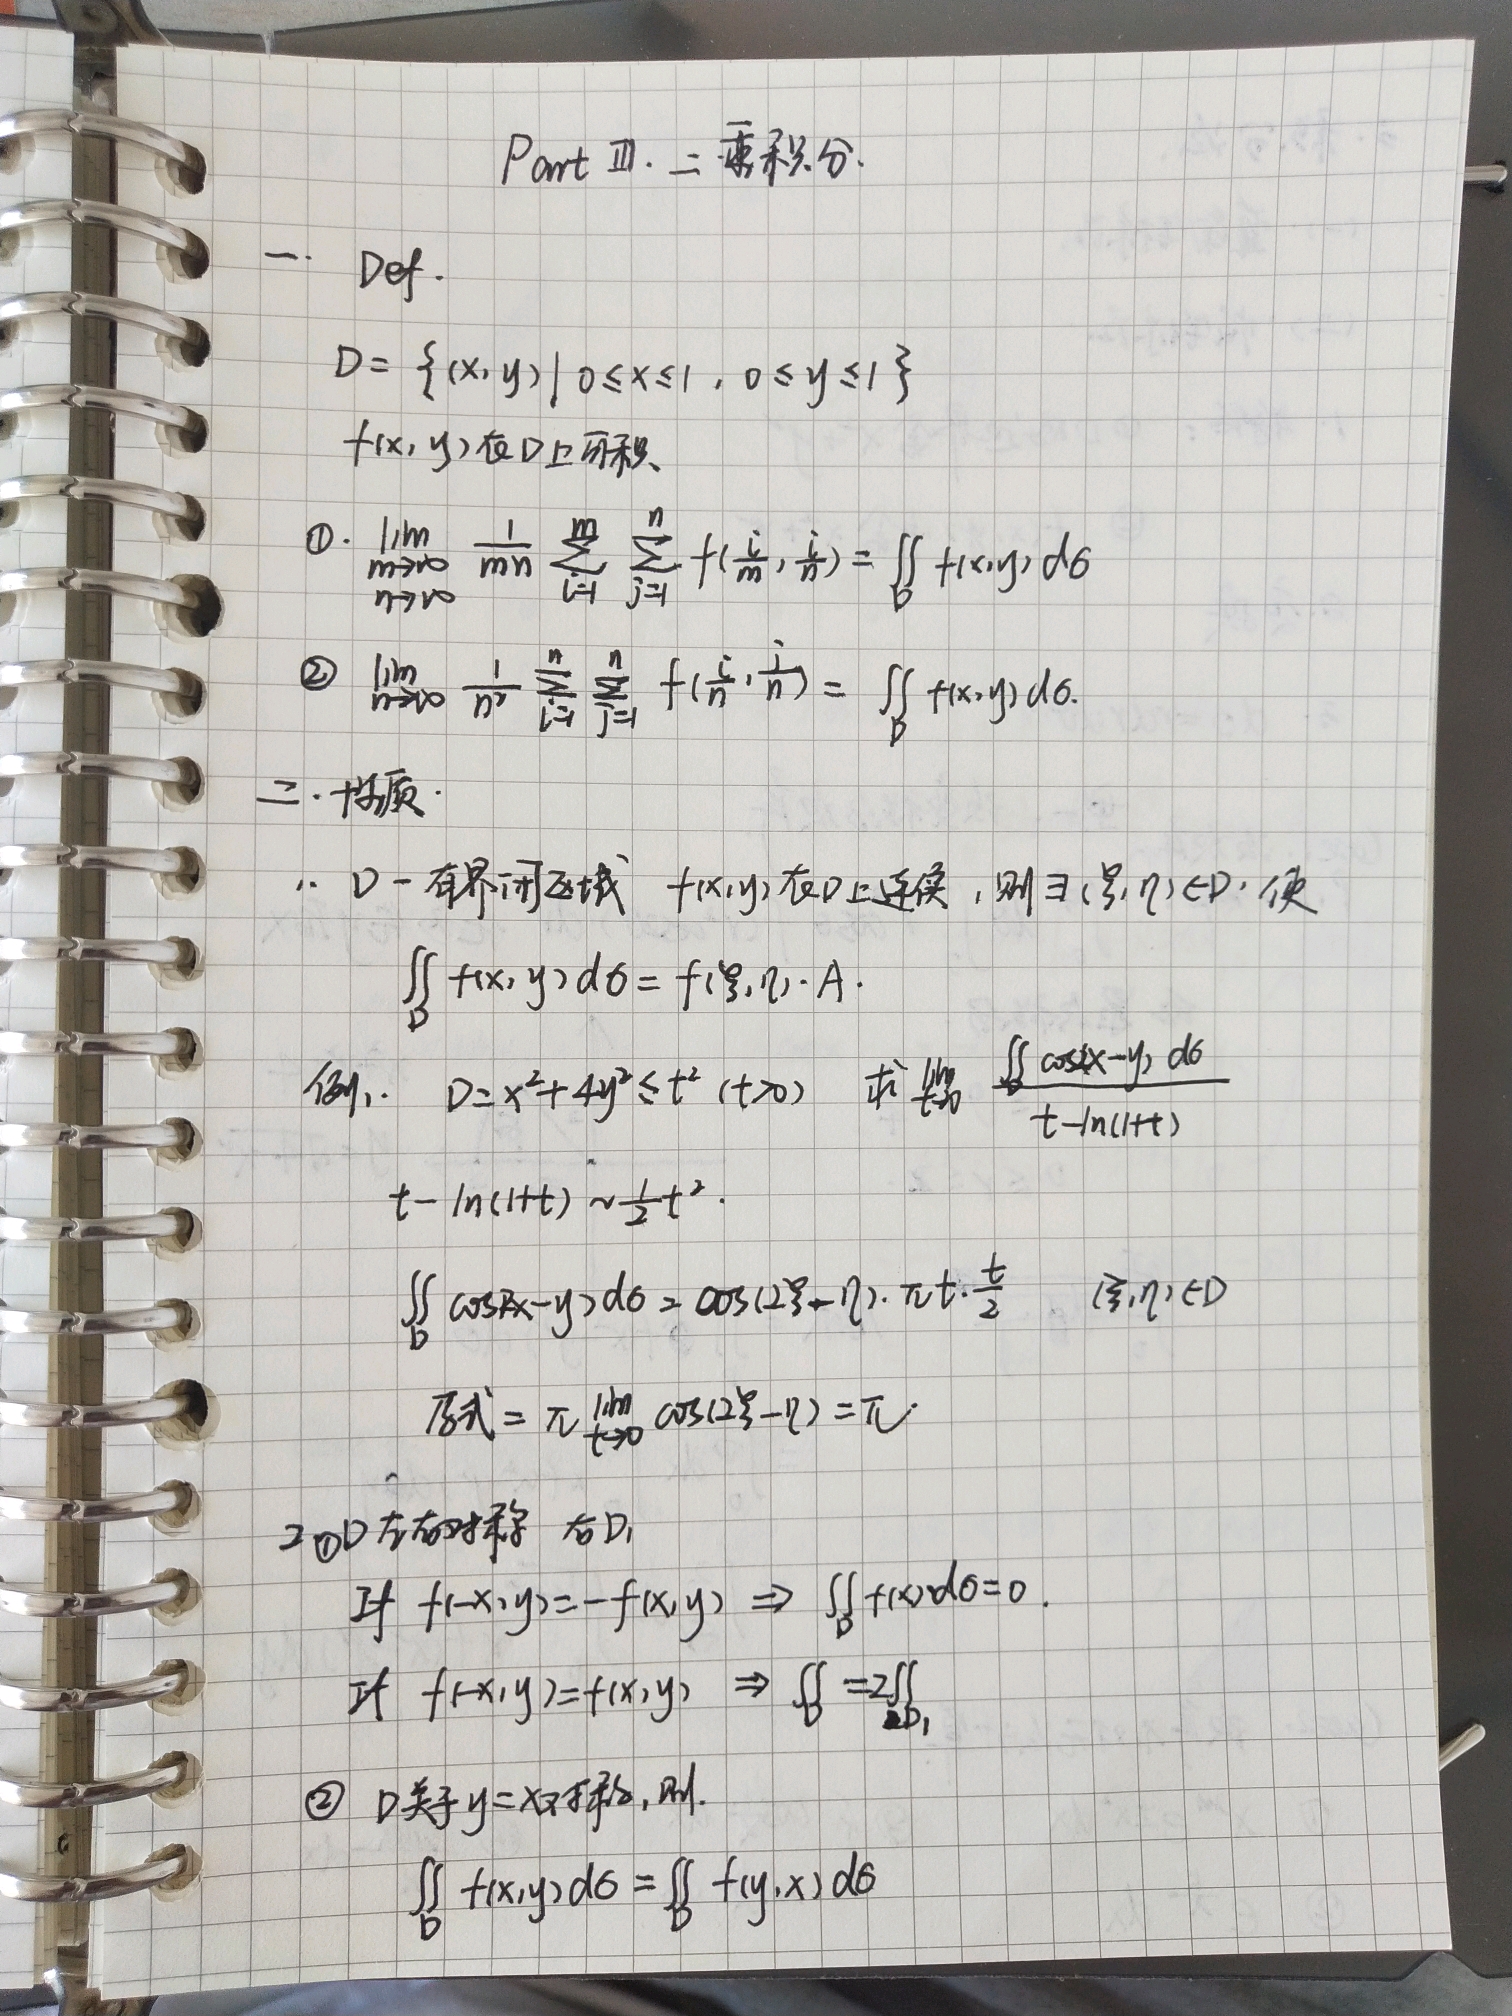 Part Ⅲ. 二重积分.
一. Def.
D = {(x, y) | 0≤x≤1, 0≤y≤1}
f(x, y)在D上可积.
①. lim_{m→∞, n→∞} 1/(mn) ∑_{i=1}^{m} ∑_{j=1}^{n} f(i/m, i/n) = ∬_D f(x,y) dσ
② lim_{n→∞} 1/n² ∑_{i=1}^{n} ∑_{j=1}^{n} f(i/n, j/n) = ∬_D f(x,y) dσ.
二. 性质.
1. D - 有界闭区域 f(x,y)在D上连续, 则∃(ξ,η)∈D. 使
∬_D f(x, y) dσ = f(ξ,η)·A.
例1. D = x²+4y² ≤ t² (t>0) 求 lim_{t→0} ∬_D cos(2x-y) dσ / (t-ln(1+t))
t - ln(1+t) ~ 1/2 t².
∬_D cos(2x-y) dσ = cos(2ξ-η)·πt·t/2 (ξ,η)∈D
原式 = π lim_{t→0} cos(2ξ-η) = π.
2 ①D左右对称 右D₁
If f(-x, y) = -f(x, y) ⇒ ∬_D f(x) dσ = 0.
If f(-x, y) = f(x, y) ⇒ ∬_D = 2∬_{D₁}
② D关于y=x对称, 则.
∬_D f(x,y) dσ = ∬_D f(y,x) dσ